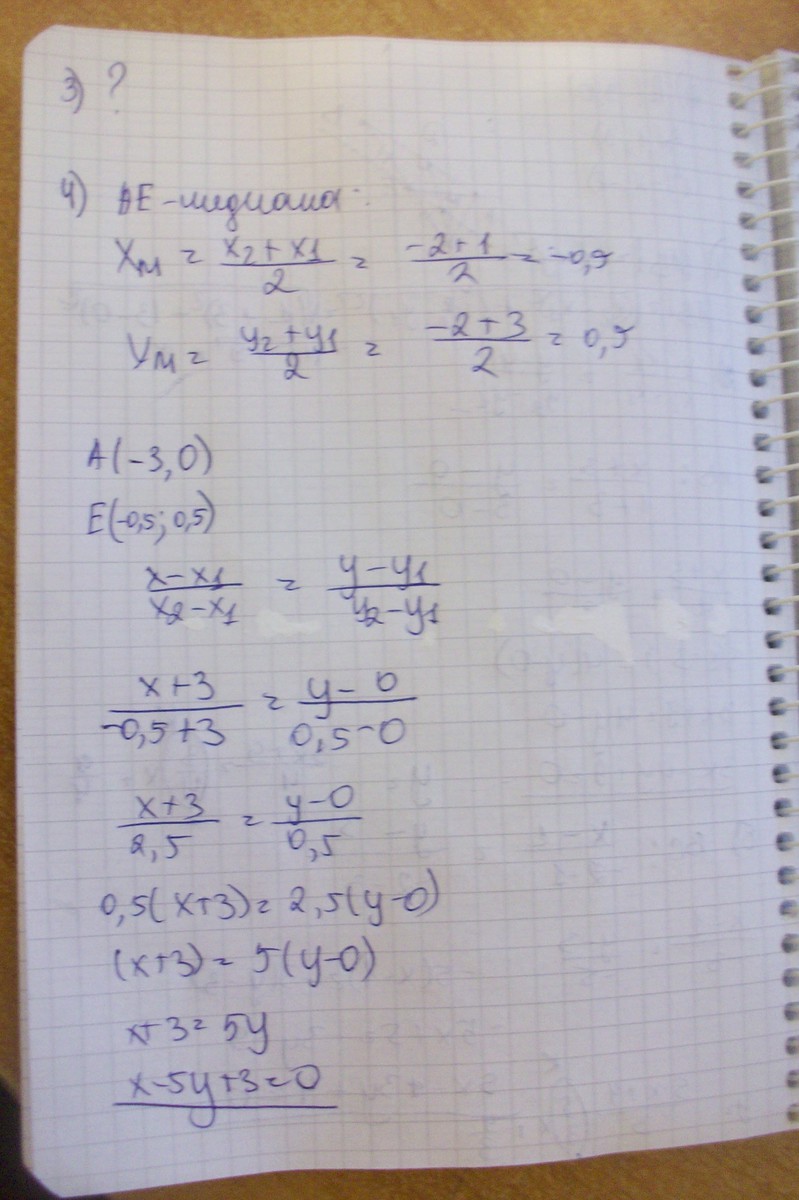 3) ?
4) AE - медиана:
Xм = (x2 + x1)/2 = (-2+1)/2 = -0,5
Yм = (y2 + y1)/2 = (-2+3)/2 = 0,5
A(-3,0)
E(-0,5; 0,5)
(x-x1)/(x2-x1) = (y-y1)/(y2-y1)
(x+3)/(-0,5+3) = (y-0)/(0,5-0)
(x+3)/2,5 = (y-0)/0,5
0,5(x+3) = 2,5(y-0)
(x+3) = 5(y-0)
x+3 = 5y
x-5y+3=0